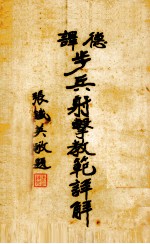 德譯
步兵射擊教範詳解
張斌英敬題